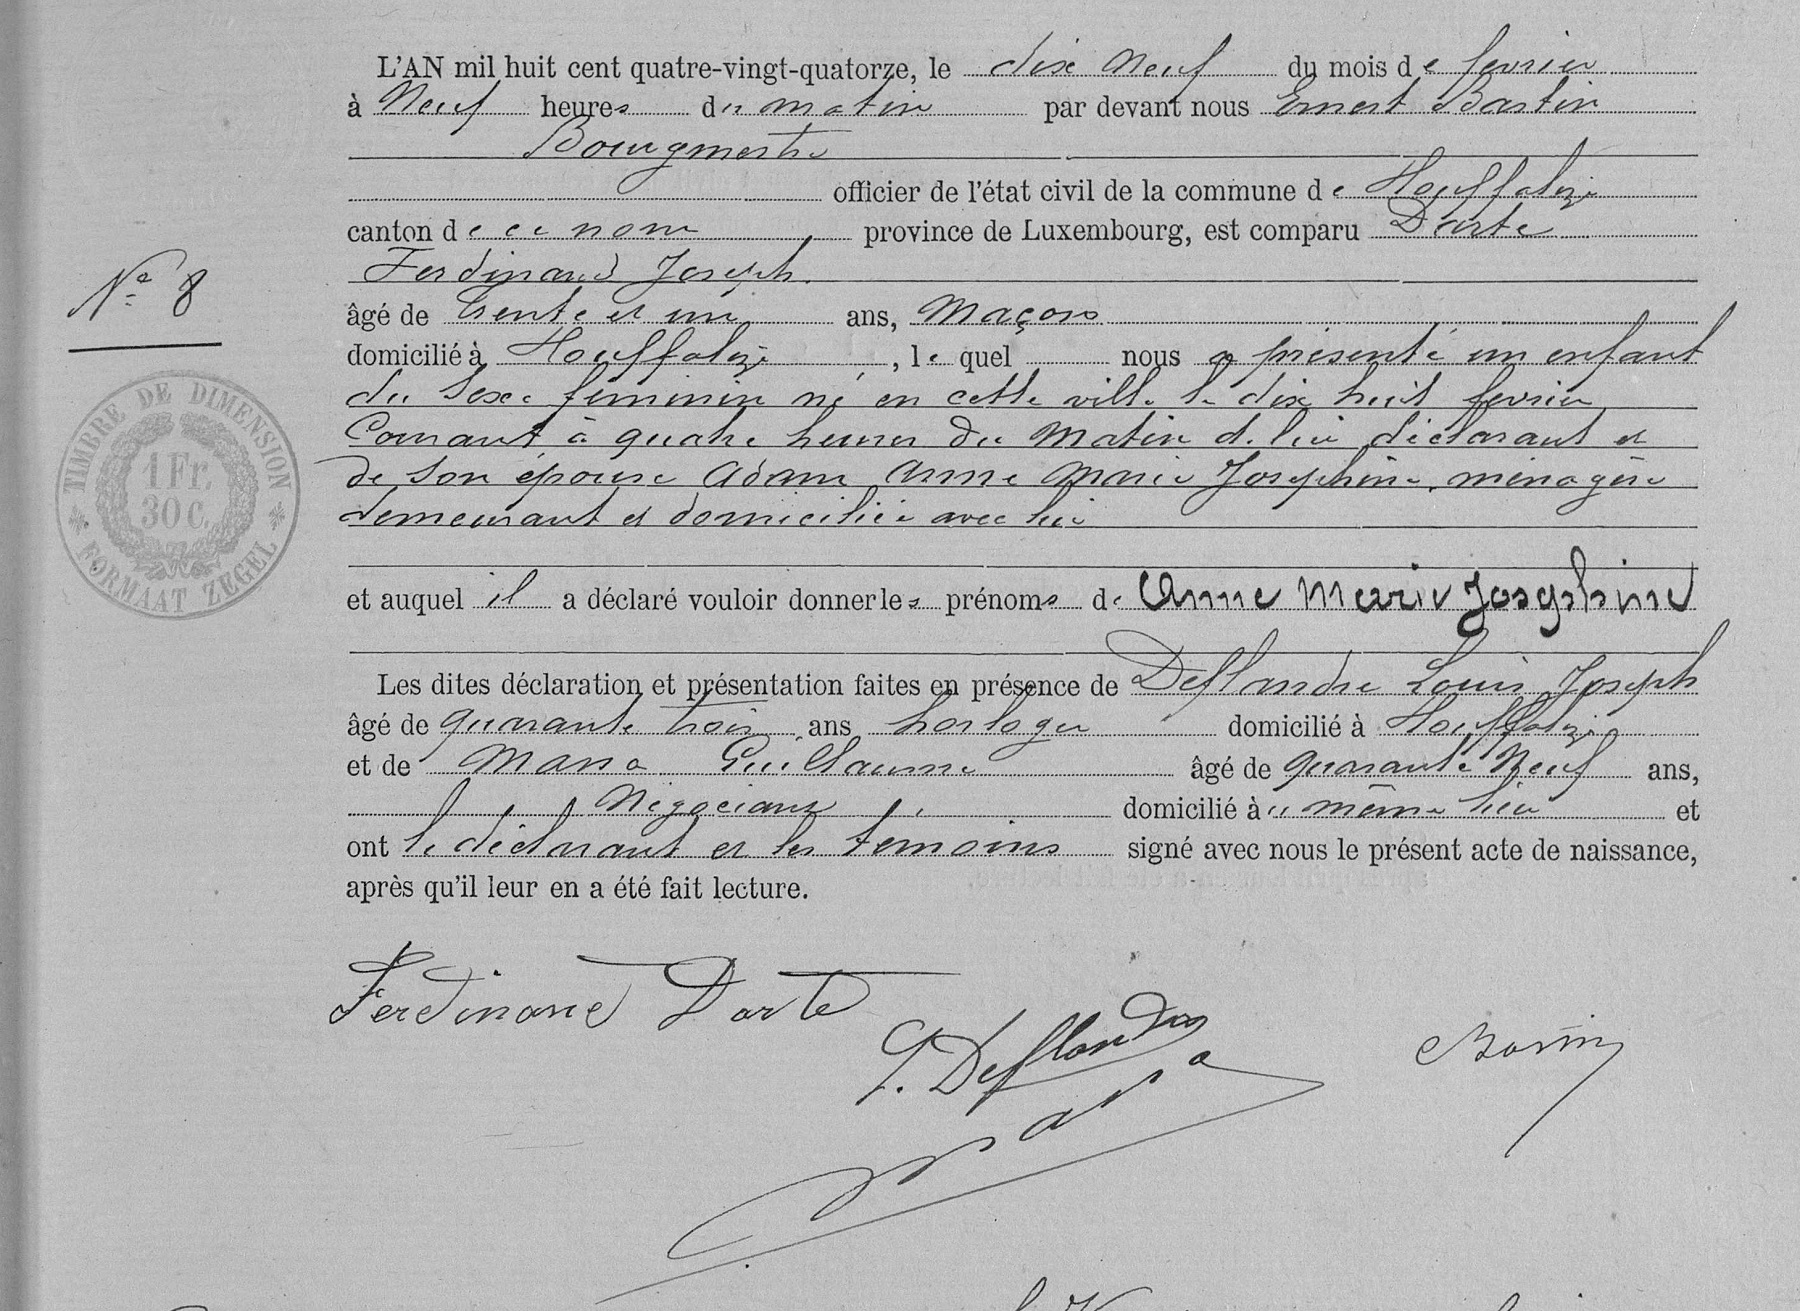 L'AN mil huit cent quatre-vingt-quatorze, le dix neuf du mois de fevrier
à Neuf heures du matin par devant nous Ernest Bastin
Bourgmestre
officier de l'état civil de la commune de Houffalize
canton de ce nom province de Luxembourg, est comparu Darte
Ferdinand Joseph
N° 8
âgé de trente et un ans, Maçon
domicilié à Houffalize, le quel nous a présenté un enfant
du sexe féminin né en cette ville le dix huit fevrier
Courant à quatre heures du Matin de lui déclarant et
de son épouse Adam Anne Marie Josephine, ménagère
demeurant et domiciliée avec lui
TIMBRE DE DIMENSION
1 Fr.
30 C.
FORMAAT ZEGEL
et auquel il a déclaré vouloir donner les prénoms de Anne Marie Josephine
Les dites déclaration et présentation faites en présence de Deflandre Louis Joseph
âgé de quarante trois ans horloger domicilié à Houffalize
et de Massa Guillaume âgé de quarante Neuf ans,
Négociant domicilié à u même lieu et
ont le déclarant et les témoins signé avec nous le présent acte de naissance,
après qu'il leur en a été fait lecture.
Ferdinand Darte
L. Deflandre
Bastin